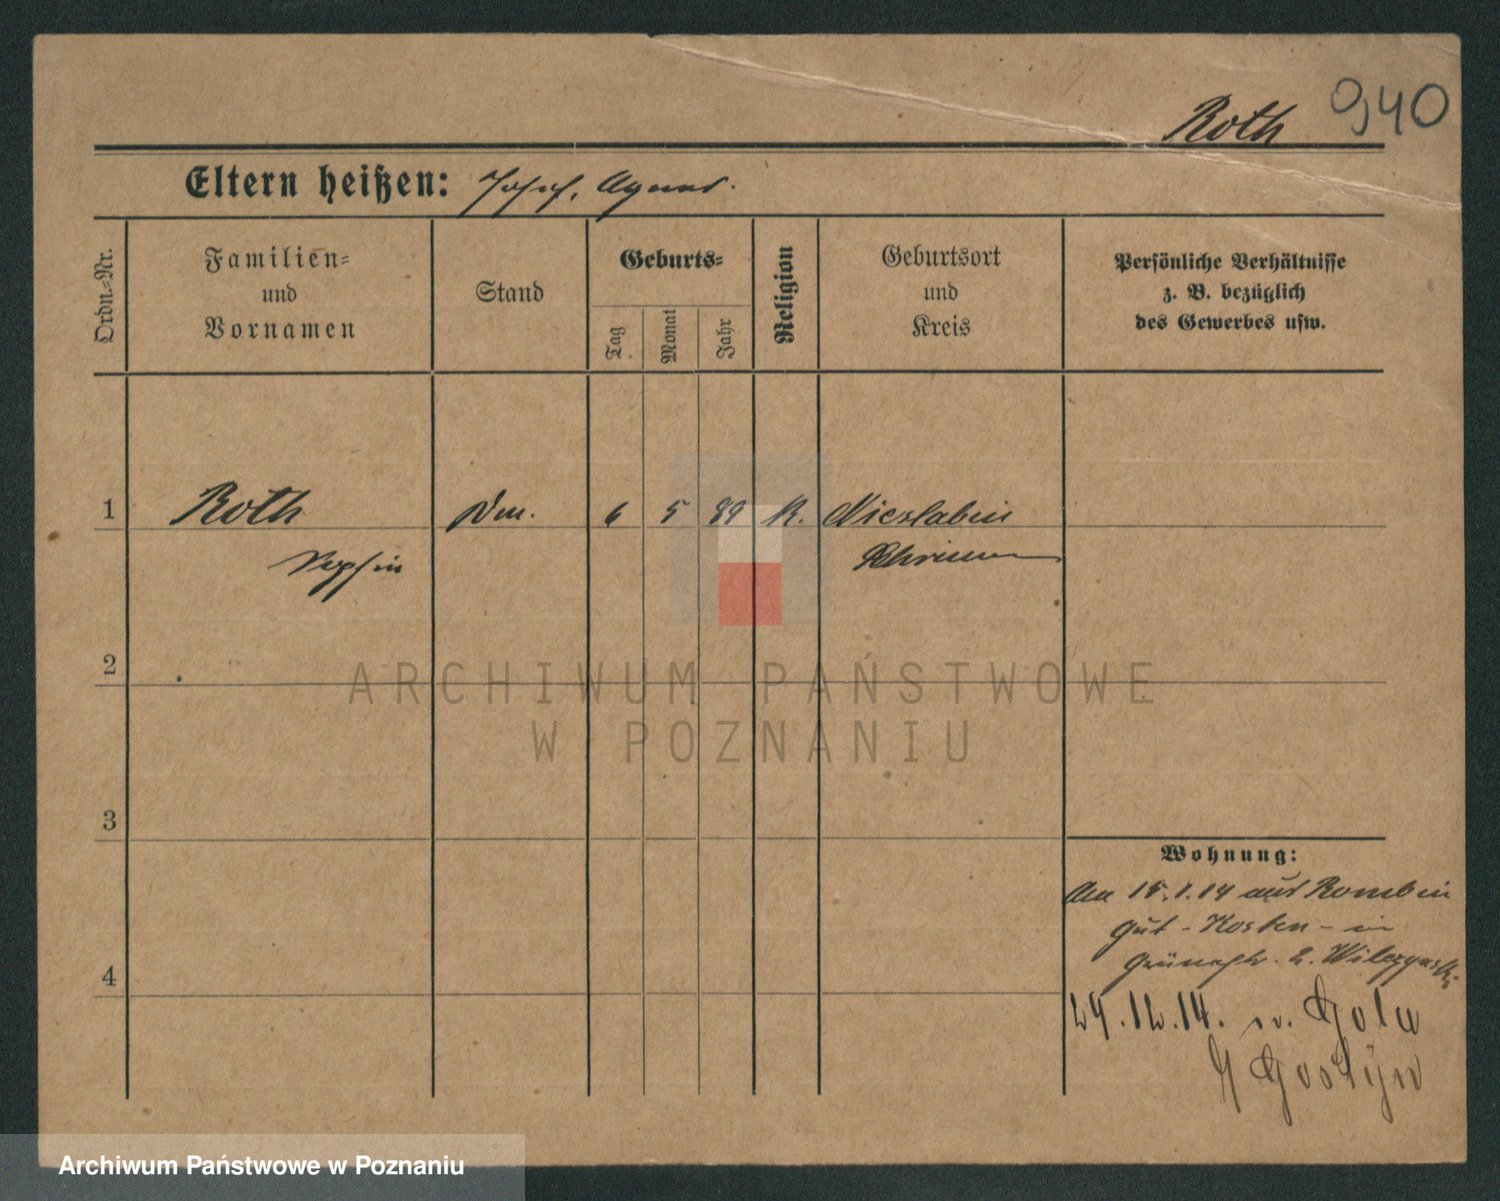 Roth 940
Eltern heißen: Josef, Agnes.
Ordn.-Nr.
Familien-
und
Vornamen
Stand
Geburts-
Tag
Monat
Jahr
Religion
Geburtsort
und
Kreis
Persönliche Verhältnisse
z. B. bezüglich
des Gewerbes usw.
1 Roth 6 5 89 K. Nieslabin
Sophie Schrimm
2
ARCHIWUM PAŃSTWOWE
W POZNANIU
3
Wohnung:
Am 15.1.14 aus Rombin
Gut - Kosten - in
Grünestr. 2.
4
24.12.14. n. Gola
Gostyn
Archiwum Państwowe w Poznaniu